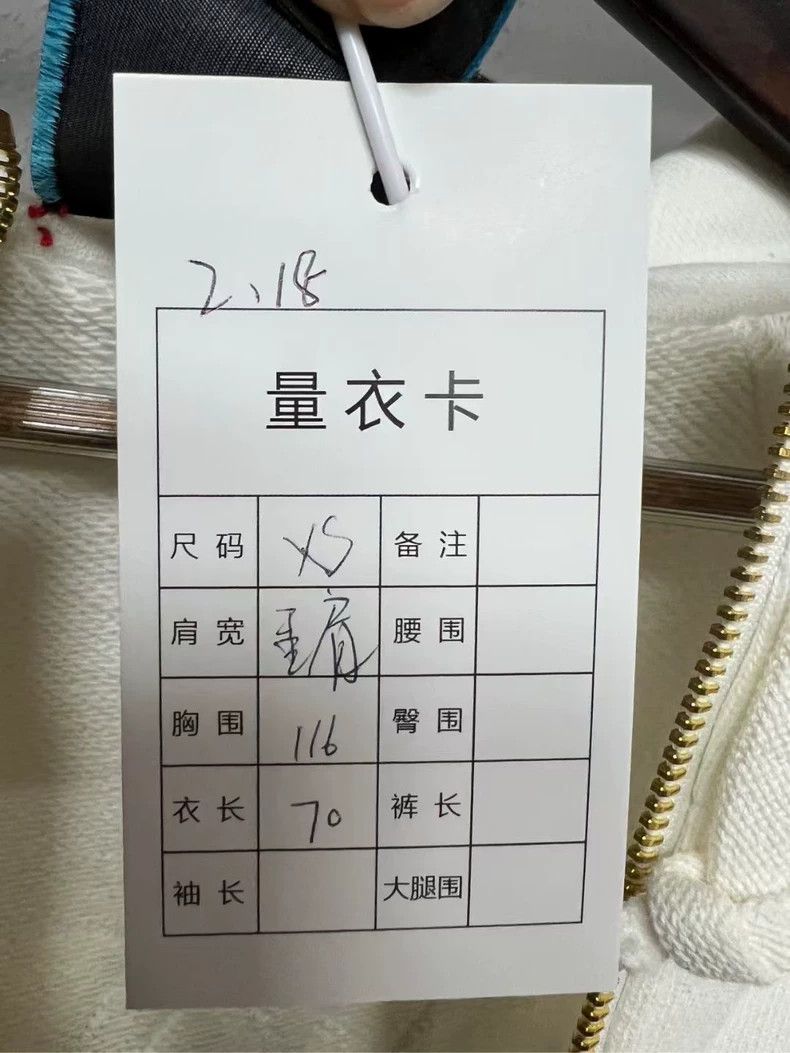 2、18
量衣卡
尺码 XS 备注
肩宽 垂肩 腰围
胸围 116 臀围
衣长 70 裤长
袖长 大腿围